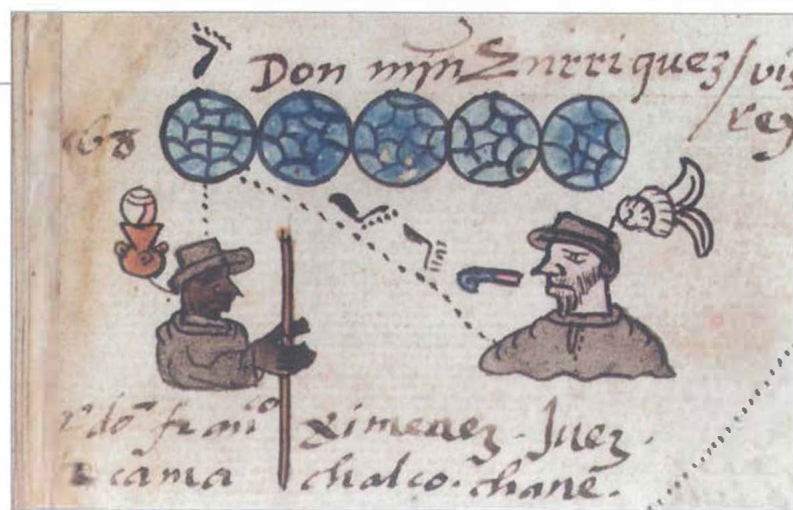 Don mīn Enrriquez / vis
rey
frān^co ximenez. Juez.
tecama chalco. chane.